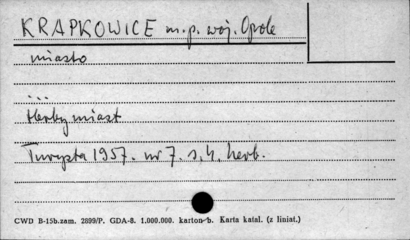 KRAPKOWICE m.p. woj. Opole
miasto
...
Herby miast
Turysta 1957. nr 7. s.4. herb.
CWD B-15b.zam. 2899/P. GDA-8. 1.000.000. karton b. Karta katal. (z liniat.)